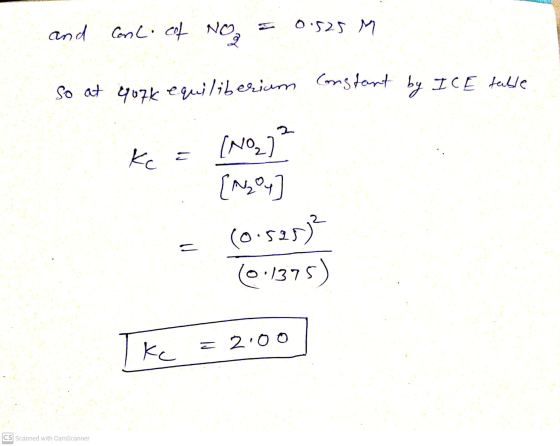 and conc. of NO₂ = 0.525 M
So at 407k equiliberium Constant by ICE table
Kc = [NO₂]² / [N₂O₄]
= (0.525)² / (0.1375)
Kc = 2.00
CS Scanned with CamScanner